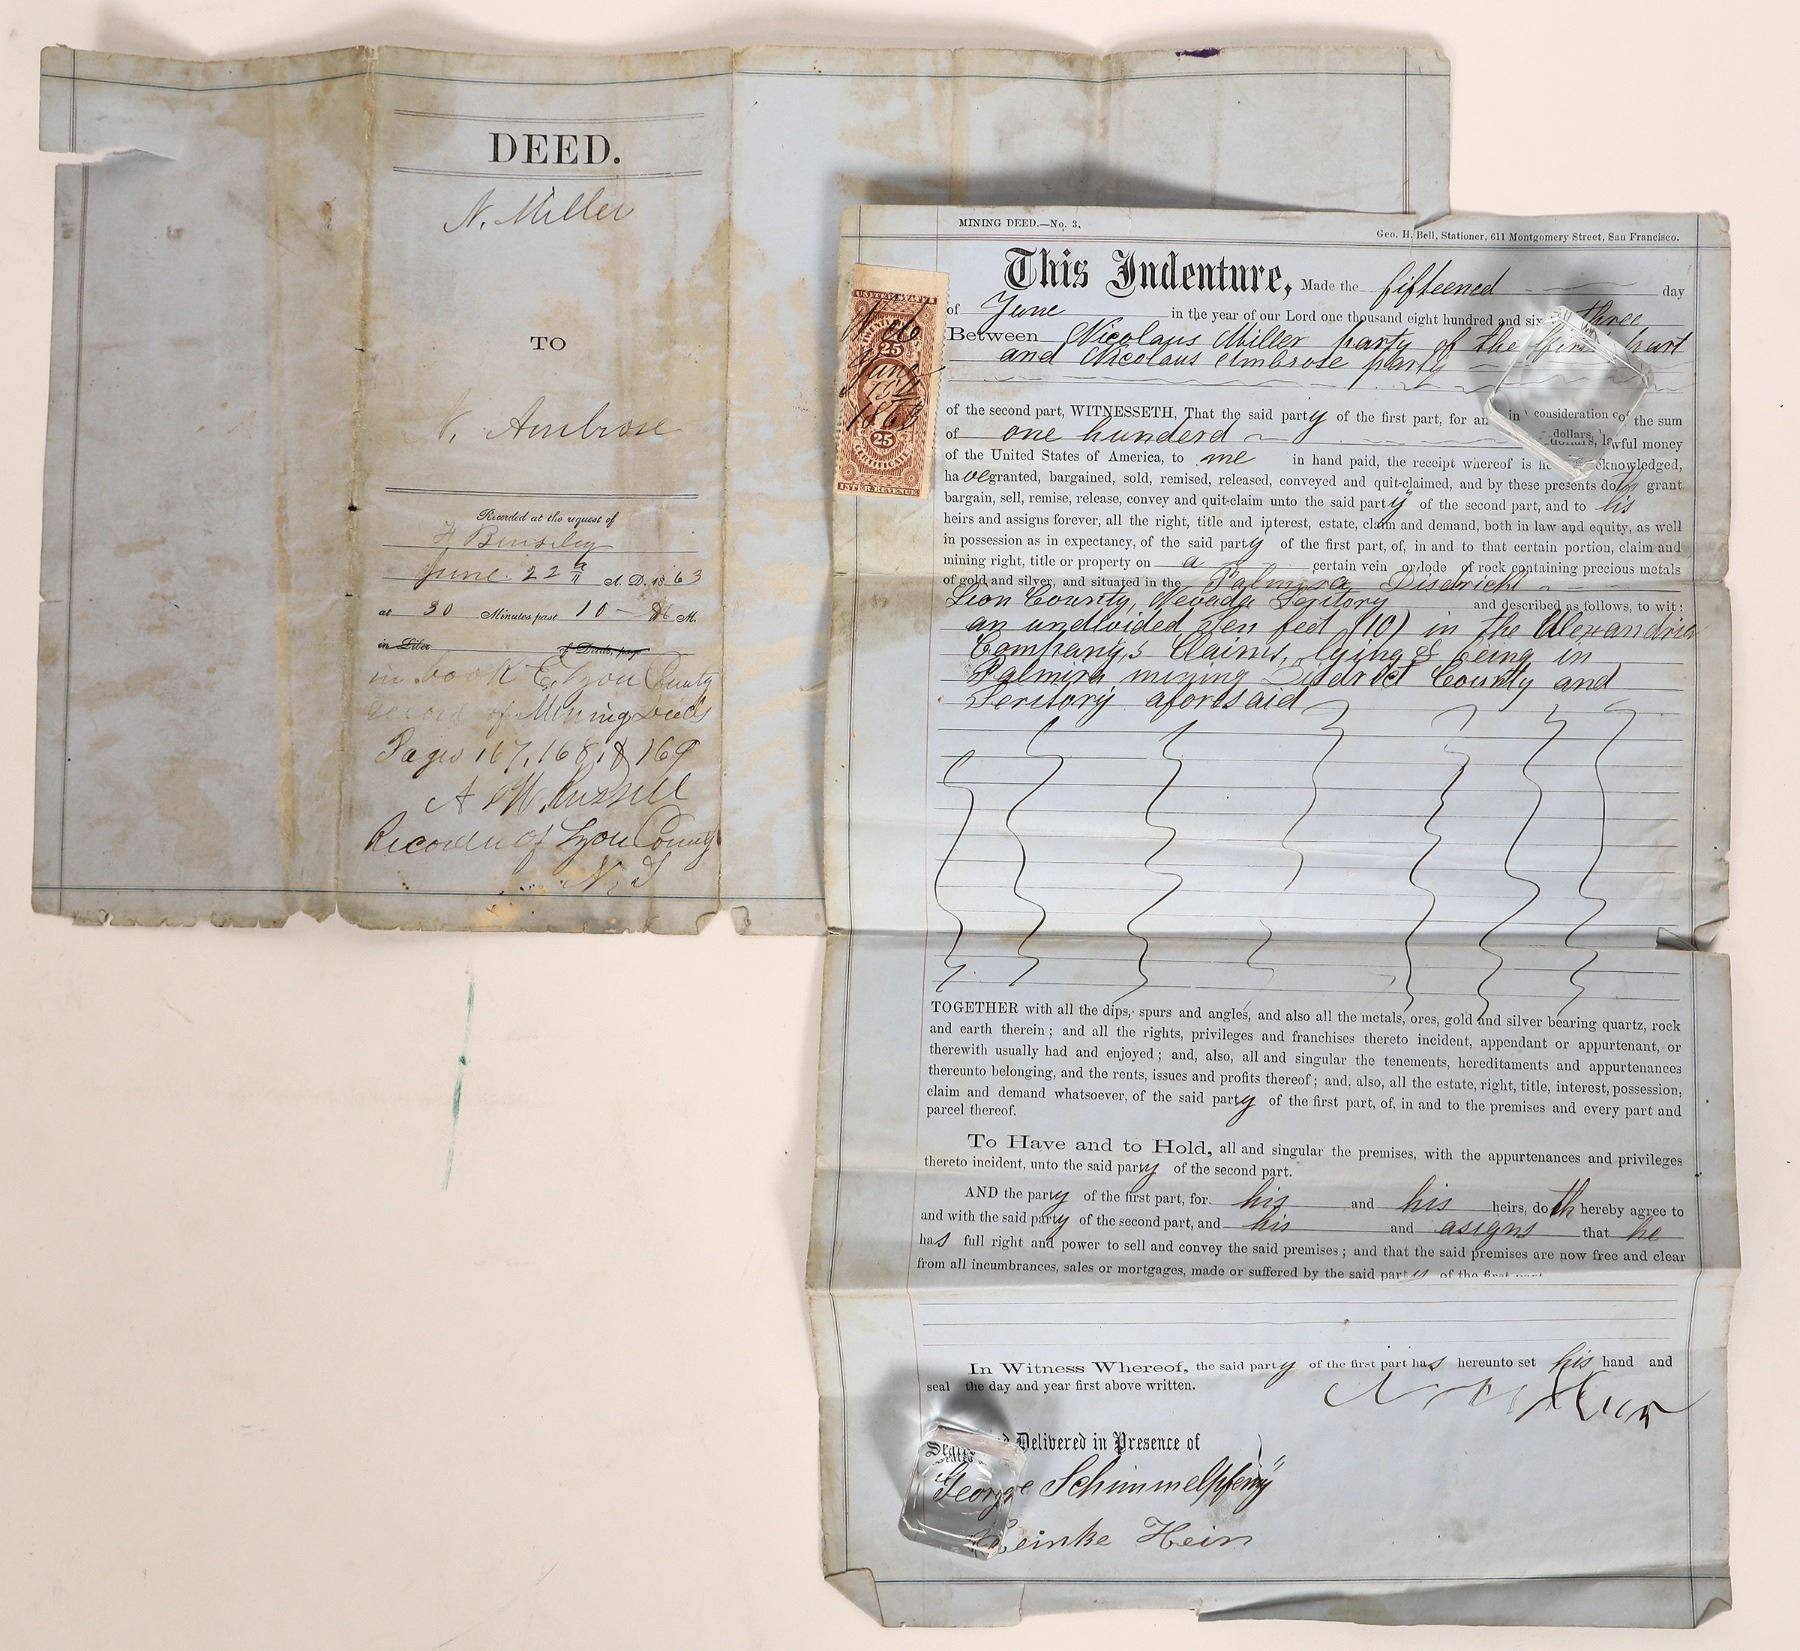 DEED.
N. Miller
TO
N. Ambrose
Recorded at the request of
June 22d A. D. 1863
at 30 Minutes past 10 M.
in Liber of Deeds, page
in book E, Lyon County
record of Mining Deeds
Pages 167, 168, & 169
Recorder of Lyon County
N. T
MINING DEED.—No. 3.
Geo. H. Bell, Stationer, 611 Montgomery Street, San Francisco.
This Indenture, Made the fifteened day
of June in the year of our Lord one thousand eight hundred and six three
Between Nicolaus Miller party of the part
and Nicolaus Ambrose party
UNITED STATES
25
June
15
1863
25
CERTIFICATE
INTER. REVENUE
of the second part, WITNESSETH, That the said party of the first part, for an in consideration of the sum
of one hunderd dollars, lawful money
of the United States of America, to me in hand paid, the receipt whereof is acknowledged,
have granted, bargained, sold, remised, released, conveyed and quit-claimed, and by these presents doth grant
bargain, sell, remise, release, convey and quit-claim unto the said party of the second part, and to his
heirs and assigns forever, all the right, title and interest, estate, claim and demand, both in law and equity, as well
in possession as in expectancy, of the said party of the first part, of, in and to that certain portion, claim and
mining right, title or property on a certain vein or lode of rock containing precious metals
of gold and silver, and situated in the Palmira Disdricht
Lion County, Nevada Teritory and described as follows, to wit:
an undivided Ten feet (10) in the Alexandria
Company,s Claims, lying & being in
Palmira mining Disdrict County and
Teritory aforesaid
TOGETHER with all the dips, spurs and angles, and also all the metals, ores, gold and silver bearing quartz, rock
and earth therein; and all the rights, privileges and franchises thereto incident, appendant or appurtenant, or
therewith usually had and enjoyed; and, also, all and singular the tenements, hereditaments and appurtenances
thereunto belonging, and the rents, issues and profits thereof; and, also, all the estate, right, title, interest, possession,
claim and demand whatsoever, of the said party of the first part, of, in and to the premises and every part and
parcel thereof.
To Have and to Hold, all and singular the premises, with the appurtenances and privileges
thereto incident, unto the said party of the second part.
AND the party of the first part, for his and his heirs, doth hereby agree to
and with the said party of the second part, and his and asigns that he
has full right and power to sell and convey the said premises; and that the said premises are now free and clear
from all incumbrances, sales or mortgages, made or suffered by the said party of the first part
In Witness Whereof, the said party of the first part has hereunto set his hand and
seal the day and year first above written.
Delivered in Presence of
George Schimmelpfenig
Heinke Hein